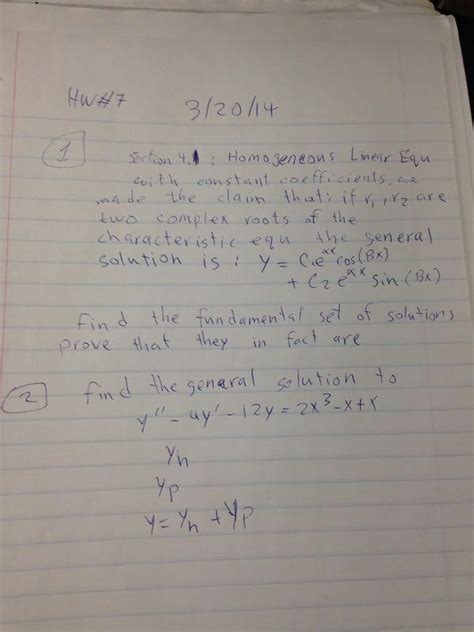 HW#7
3/20/14
1
Section 4.1: Homogeneous Linear Equ
with constant coefficients, we
made the claim that: if r₁, r₂ are
two complex roots of the
characteristic equ the general
solution is: y = C₁e^αx cos(Bx)
+ C₂e^αx sin(Bx)
Find the fundamental set of solutions
prove that they in fact are
2
find the general solution to
y'' - 4y' - 12y = 2x³ - x + x
Yh
Yp
y = Yh + Yp